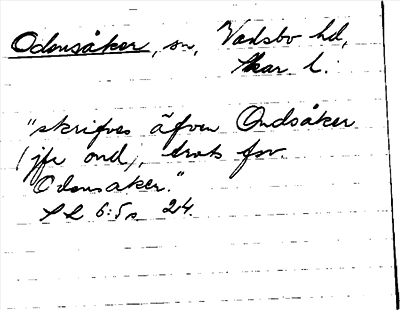 Odensåker, sn, Vadsbo hd,
Skar l.
"skrifves äfven Ondsåker
(jfr ond), trots fsv.
Odensaker."
SL 6:5 s 24.